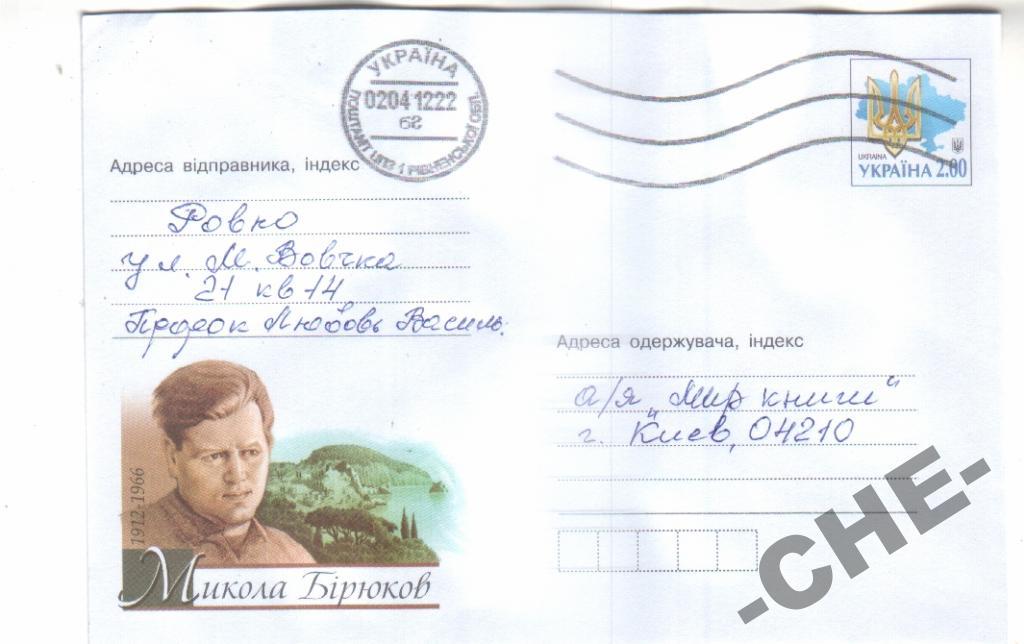 УКРАЇНА
02041222
62
ПОШТАМТ ЦПЗ 1 РІВНЕНСЬКОЇ ОБЛ.
UKRAINA
УКРАЇНА 2.00
Адреса відправника, індекс
Ровно
ул. М. Вовчка
21 кв 14
Любовь Василь.
Адреса одержувача, індекс
а/я "Мир книги"
г. Киев, 04210
1912-1966
Микола Бірюков
-CHE-